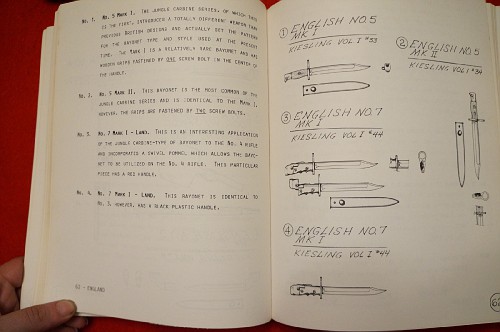 No. 1. No. 5 Mark I. The Jungle Carbine series, of which this
is the first, introduced a totally different weapon than
previous British designs and actually set the pattern
for the bayonet type and style used at the present
time. The Mark I is a relatively rare bayonet and has
wooden grips fastened by one screw bolt in the center of
the handle.
No. 2. No. 5 Mark II. This bayonet is the most common of the
jungle carbine series and is identical to the Mark I,
however, the grips are fastened by two screw bolts.
No. 3. No. 7 Mark I - Land. This is an interesting application
of the jungle carbine-type of bayonet to the No. 4 rifle
and incorporates a swivel pommel which allows the bayo-
net to be utilized on the No. 4 rifle. This particular
piece has a red handle.
No. 4. No. 7 Mark I - Land. This bayonet is identical to
No. 3, however, has a black plastic handle.
62 - ENGLAND
① ENGLISH NO. 5
MK I
KIESLING VOL I #33
② ENGLISH NO. 5
MK II
KIESLING VOL I #34
③ ENGLISH NO. 7
MK I
KIESLING VOL I #44
④ ENGLISH NO. 7
MK I
KIESLING VOL I #44